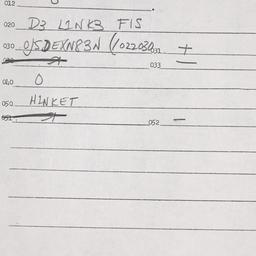 012
020 D3 L1NK3 FIS
030 0/5DEXNR3N (1022030 031 +
033 —
040 0
050 HINKET
051 052 —